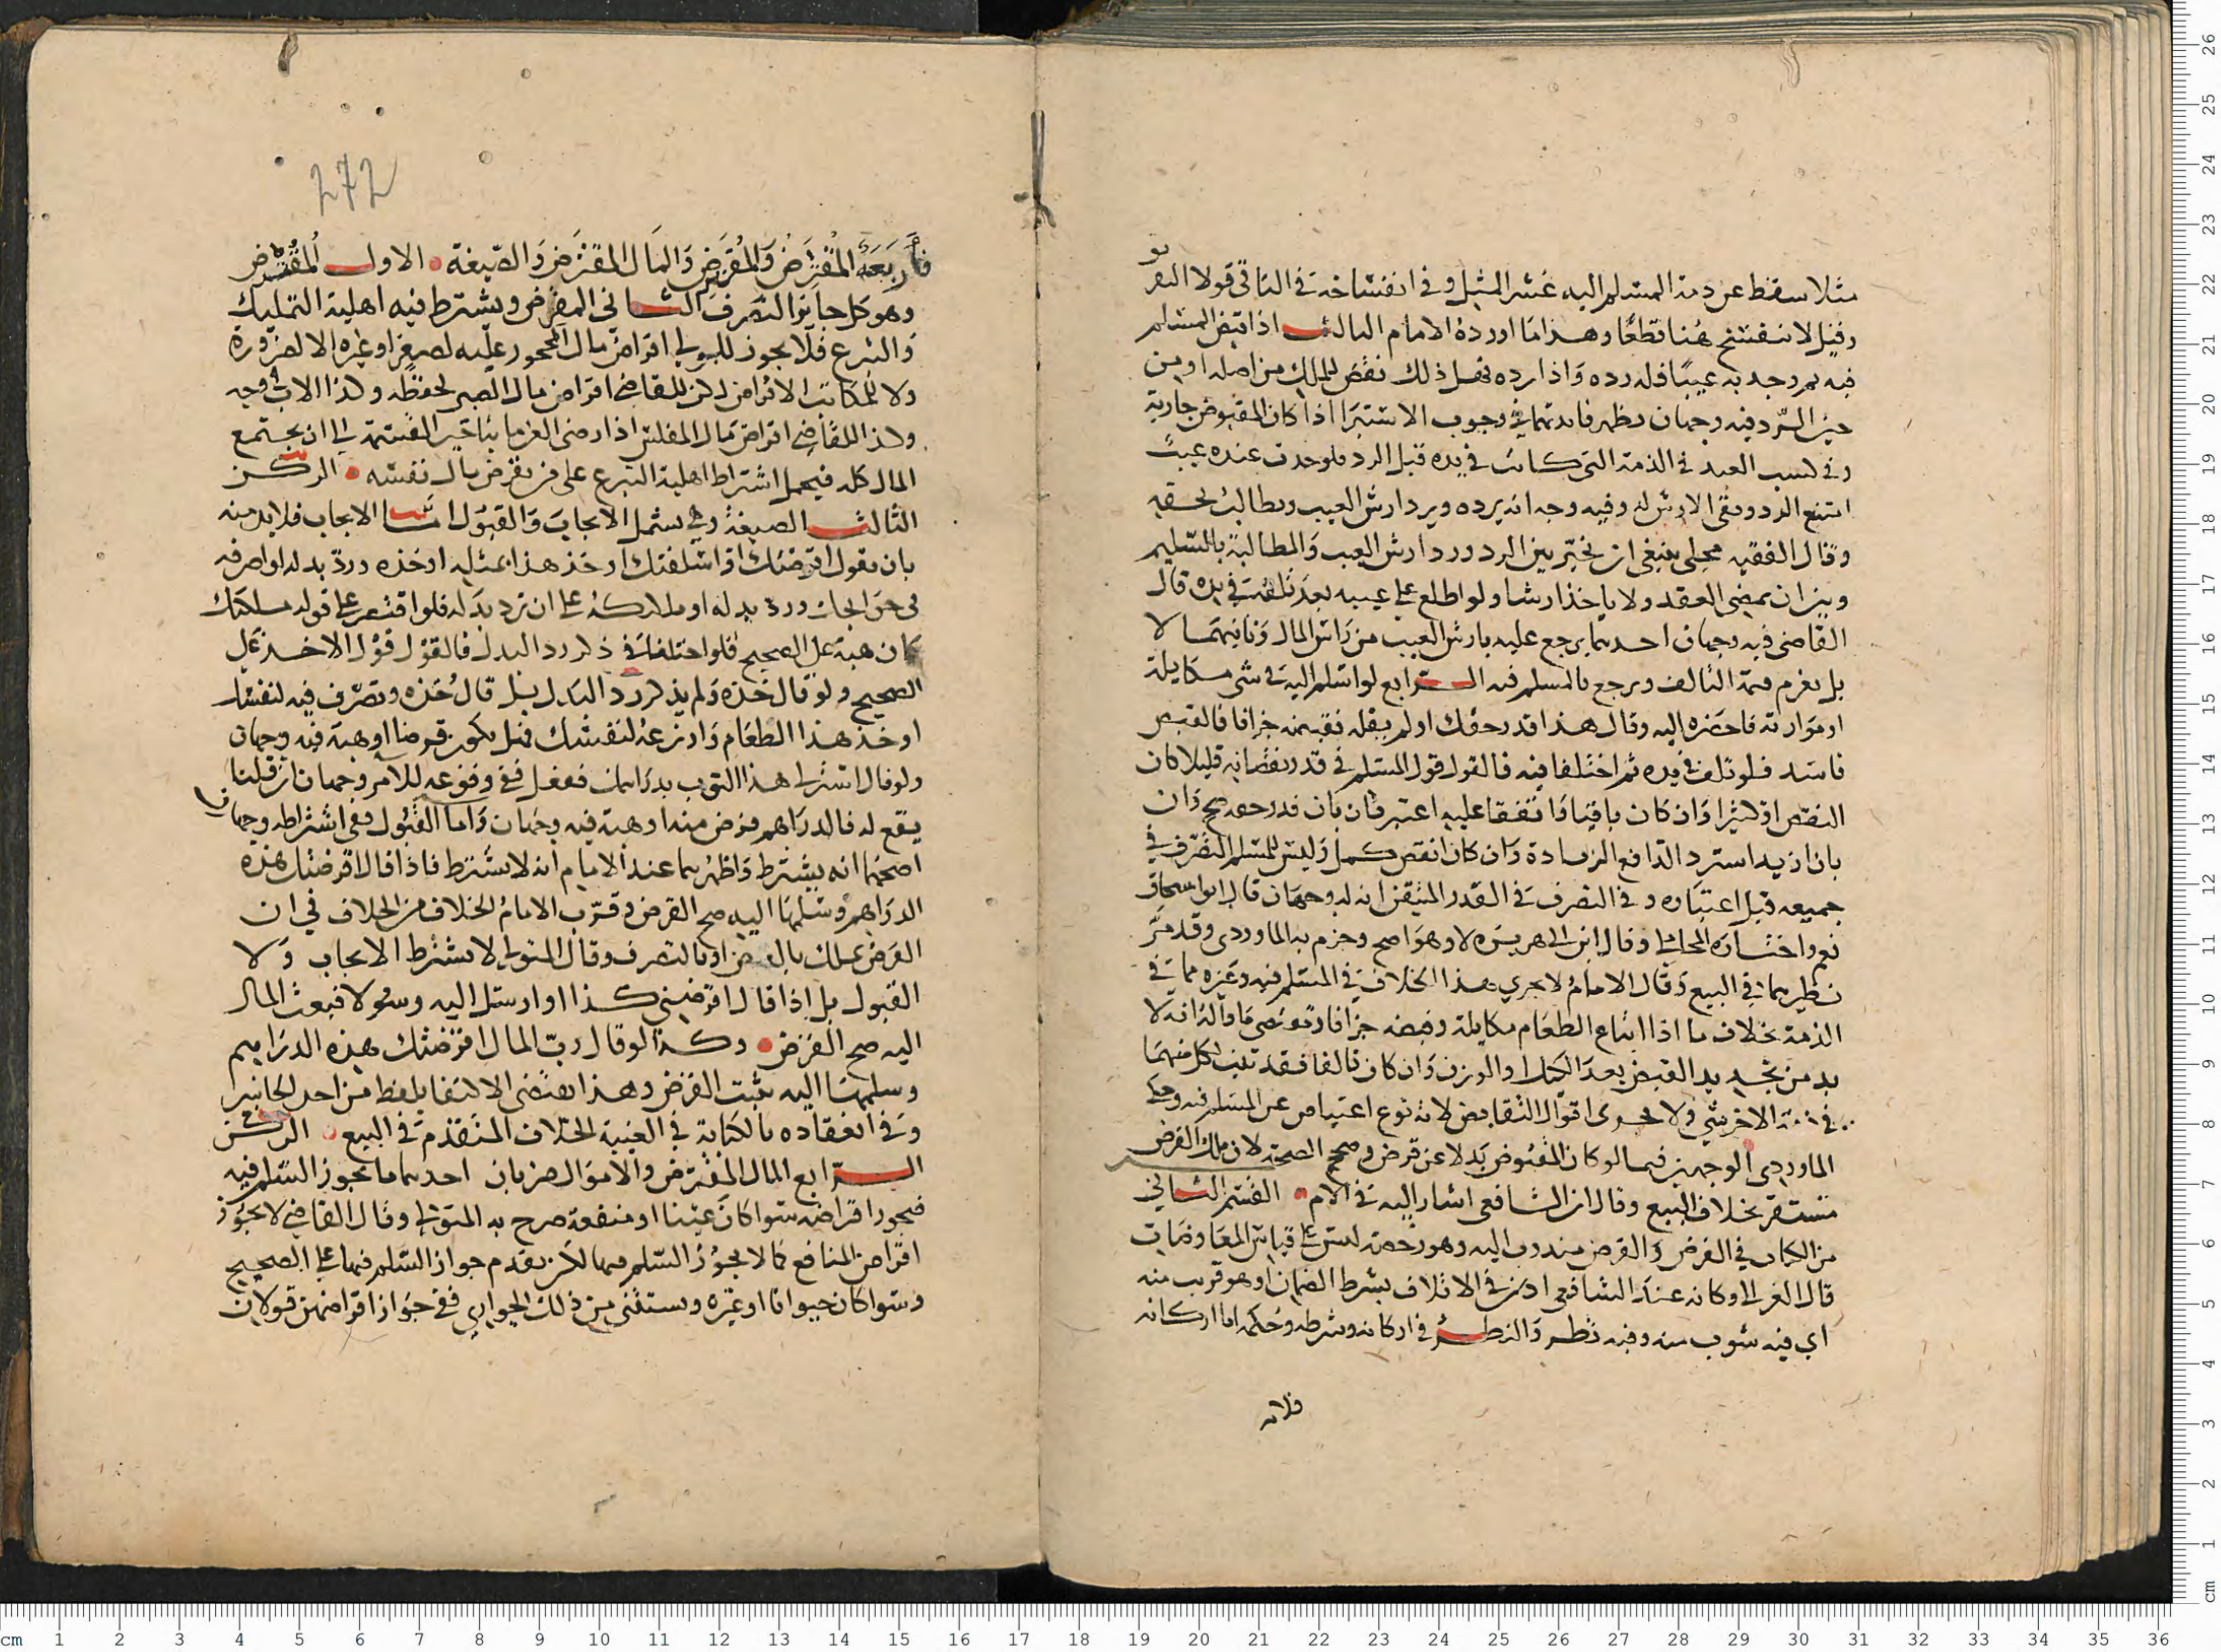 مثلا سقط عن ذمة المسلم اليه عشر المثل وفي انفساخه في الباقي قولا التفر
وقيل لا ينفسخ هنا قطعا وهذا ما اورده الامام الثالث اذا قبض المسلم
فيه ثم وجد به عيبا فله رده واذا رده فهل ذلك نقض للملك من اصله او من
حين الرد فيه وجهان تظهر فائدتهما في وجوب الاستبرا اذا كان المقبوض جارية
وفي كسب العبد في الذمة التي كانت في يده قبل الرد فلو حدث عنده عيب
امتنع الرد وبقي الارش له وفيه وجه انه يرده ويرد ارش العيب ويطالب بحقه
وقال الفقيه مجلي ينبغي ان يخير بين الرد ورد ارش العيب والمطالبة بالتسليم
وبين ان يمضي العقد ولا ياخذ ارشا ولو اطلع على عيبه بعد تلفه في يده قال
القاضي فيه وجهان احدهما يرجع عليه بارش العيب من راس المال وثانيهما لا
بل يغرم قيمة التالف ويرجع بالمسلم فيه الرابع لو اسلم اليه في شي مكايلة
او موازنة فاحضره اليه وقال هذا قدر حقك او لم يقله فقبضه جزافا فالقبض
فاسد فلو تلف في يده ثم اختلفا فيه فالقول قول المسلم في قدر نقصانه قليلا كان
النقص او كثيرا وان كان باقيا واتفقا عليه اعتبر فان بان قدر حقه صح وان
بان ازيد استرد الدافع الزيادة وان كان انقص كمل وليس للمسلم التصرف في
جميعه قبل اعتباره وفي التصرف في القدر المتيقن انه له وجهان قال ابو اسحاق
نعم واختاره المحاملي وقال ابن ابي هريرة لا وهو اصح وجزم به الماوردي وقد مر
نظيرهما في البيع وقال الامام لا يجري هذا الخلاف في المسلم فيه وغيره مما في
الذمة بخلاف ما اذا ابتاع الطعام مكايلة وقبضه جزافا وقد نص ما قاله انه لا
بد من تجديد القبض بعد الكيل او الوزن وان كان تالفا فقد ثبت لكل منهما
في ذمة الاخر شي ولا يجري اقوال التقابض لانه نوع اعتياض عن المسلم فيه وحكى
الماوردي الوجهين فيما لو كان المقبوض بدلا عن قرض وصحح الصحة لان ملك القرض
مستقر بخلاف البيع وقال ان الشافعي اشار اليه في الام القسم الثاني
من الكتاب في القرض والقرض مندوب اليه وهو رخصة ليس على قياس المعاوضات
قال الغزالي وكانه عند الشافعي اذن في الاتلاف بشرط الضمان او هو قريب منه
اي فيه شوب منه وفيه نظر والنظر في اركانه وشرطه وحكمه اما اركانه
272
فأربعة المقترض والمقرض والمال المقترض والصيغة الاول المقترض
وهو كل جائز التصرف الثاني المقرض ويشترط فيه اهلية التمليك
والتبرع فلا يجوز للولي اقراض مال المحجور عليه لصغر او غيره الا لضرورة
ولا للمكاتب الاقراض لكن للقاضي اقراض مال الصبي لحفظه وكذا الاب في وجه
وكذا للقاضي اقراض مال المفلس اذا رضي الغرما بتاخير القسمة الى ان يجتمع
المال كله فيحمل اشتراط اهلية التبرع على من يقرض مال نفسه الركن
الثالث الصيغة وهي يشتمل الايجاب والقبول اما الايجاب فلا بد منه
بان يقول اقرضتك او اسلفتك او خذ هذا بمثله او خذه ورد بدله او اصرفه
في حوائجك ورد بدله او ملكتكه على ان ترد بدله فلو اقتصر على قوله ملكتك
كان هبة على الصحيح فلو اختلفا في ذكر رد البدل فالقول قول الاخذ على
الصحيح ولو قال خذه ولم يذكر رد البدل بل قال خذه وتصرف فيه لنفسك
او خذ هذا الطعام وازرعه لنفسك فهل يكون قرضا او هبة فيه وجهان
ولو قال اشتر لي هذا الثوب بدراهمك ففعل ففي وقوعه للامر وجهان ان قلنا
يقع له فالدراهم قرض منه او هبة فيه وجهان واما القبول ففي اشتراطه وجهان
اصحهما انه يشترط واظهرهما عند الامام انه لا يشترط فاذا قال اقرضتك هذه
الدراهم وسلمها اليه صح القرض وقرب الامام الخلاف من الخلاف في ان
القرض يملك بالقبض او بالتصرف وقال المتولي لا يشترط الايجاب ولا
القبول بل اذا قال اقرضني كذا او ارسل اليه رسولا فبعث المال
اليه صح القرض وكذا لو قال رب المال اقرضتك هذه الدراهم
وسلمها اليه ثبت القرض وهذا يقتضي الاكتفا بلفظ من احد الجانبين
وفي انعقاده بالكتابة في الغيبة الخلاف المتقدم في البيع الركن
الرابع المال المقترض والاموال ضربان احدهما ما يجوز السلم فيه
فيجوز اقراضه سوا كان عينا او منفعة صرح به المتولي وقال القاضي لا يجوز
اقراض المنافع كما لا يجوز السلم فيها لكن يقدم جواز السلم فيها على الصحيح
وسوا كان حيوانا او غيره ويستثنى من ذلك الجواري ففي جواز اقراضهن قولان